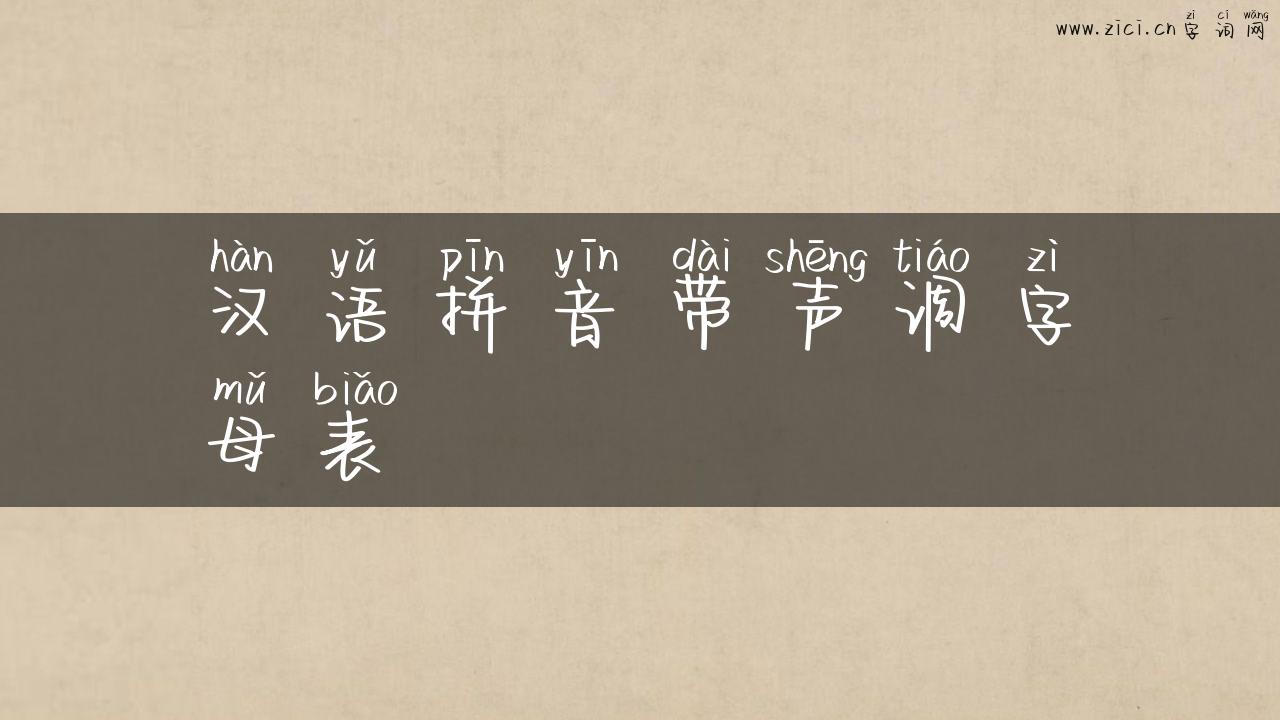 zì cí wǎng
www.zici.cn 字 词 网
hàn yǔ pīn yīn dài shēng tiáo zì
汉 语 拼 音 带 声 调 字
mǔ biǎo
母 表